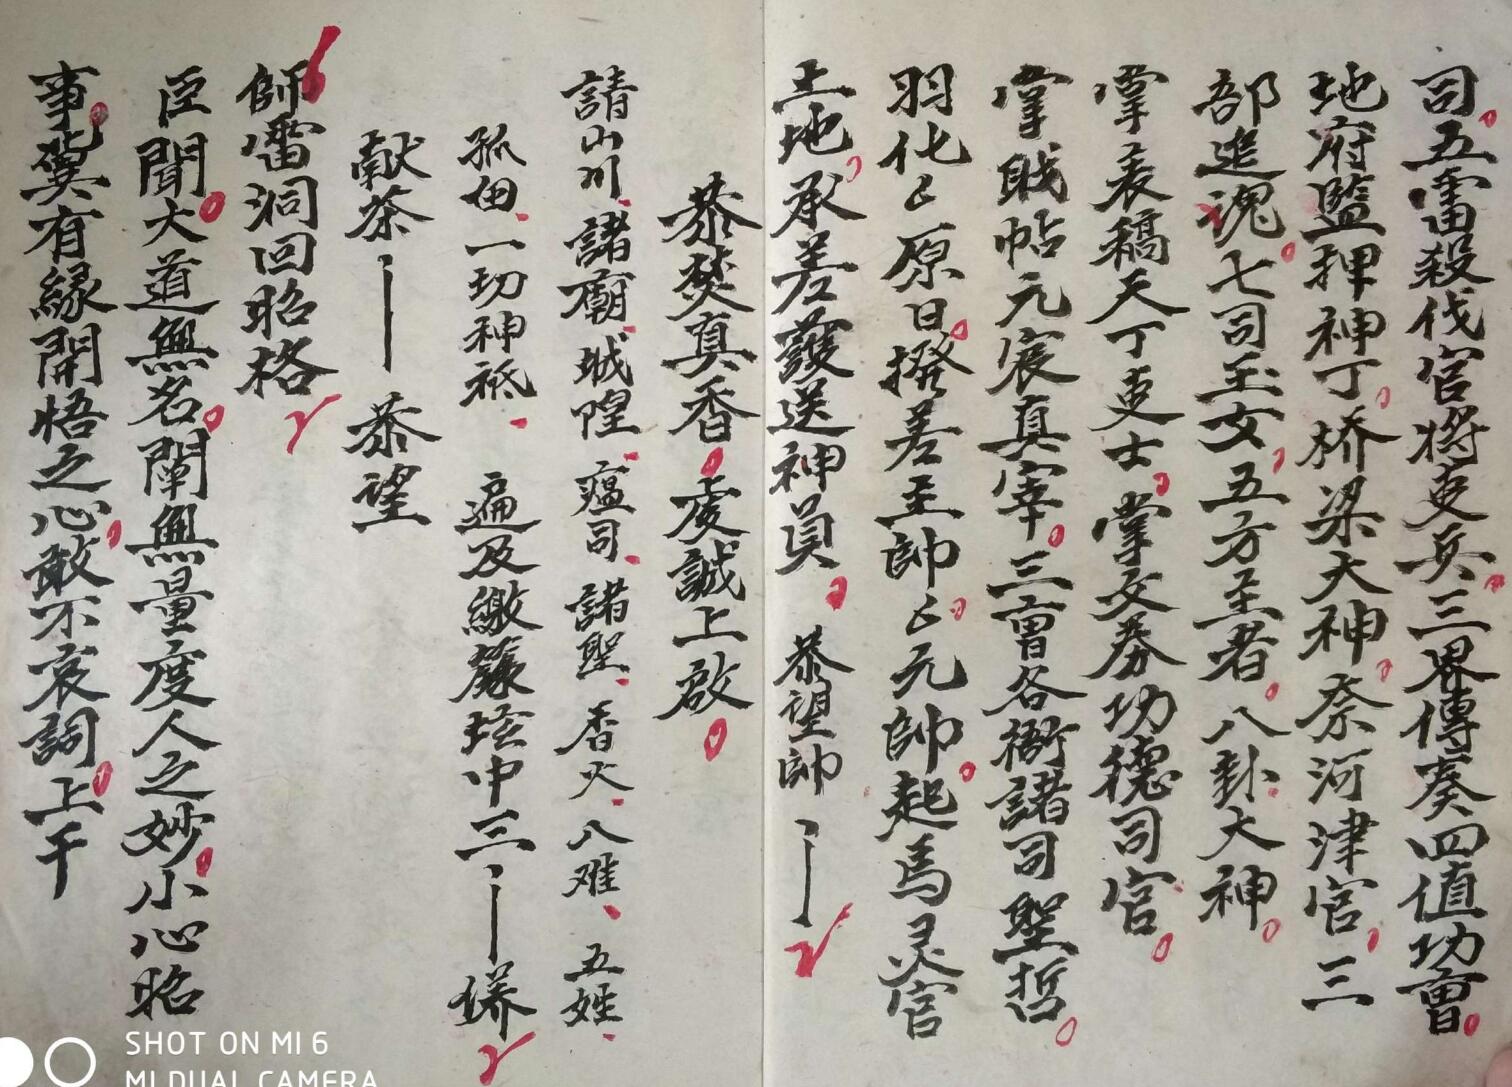 司五雷殺伐官将吏兵三界傳奏四值功曹
地府監押神丁桥梁大神奈河津官三
部追魂七司玉女五方至者八卦大神
掌表稿天丁吏士掌文券功德司官
掌賎帖元宸真宰三曹各衙諸司聖哲
羽化㔾原日撥差至帥㔾元帥起馬灵官
土地承差護送神員 恭望帥
恭焚真香虔誠上啟
請山川諸廟城隍瘟司諸聖香火八难五姓
孤由一切神祗 遍及繳籙坛中三
献茶 恭望
師雷洞回昭格
臣聞大道無名闡無量度人之妙小心昭
事冀有緣開悟之心敢不哀詞上干
SHOT ON MI 6
MI DUAL CAMERA